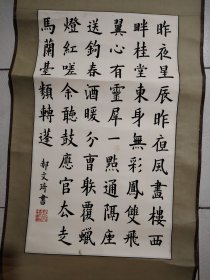 昨夜星辰昨夜風畫樓西
畔桂堂東身無彩鳳雙飛
翼心有靈犀一點通隔座
送鉤春酒暖分曹射覆蠟
燈紅嗟余聽鼓應官去走
馬蘭臺類轉蓬 郝文琦書